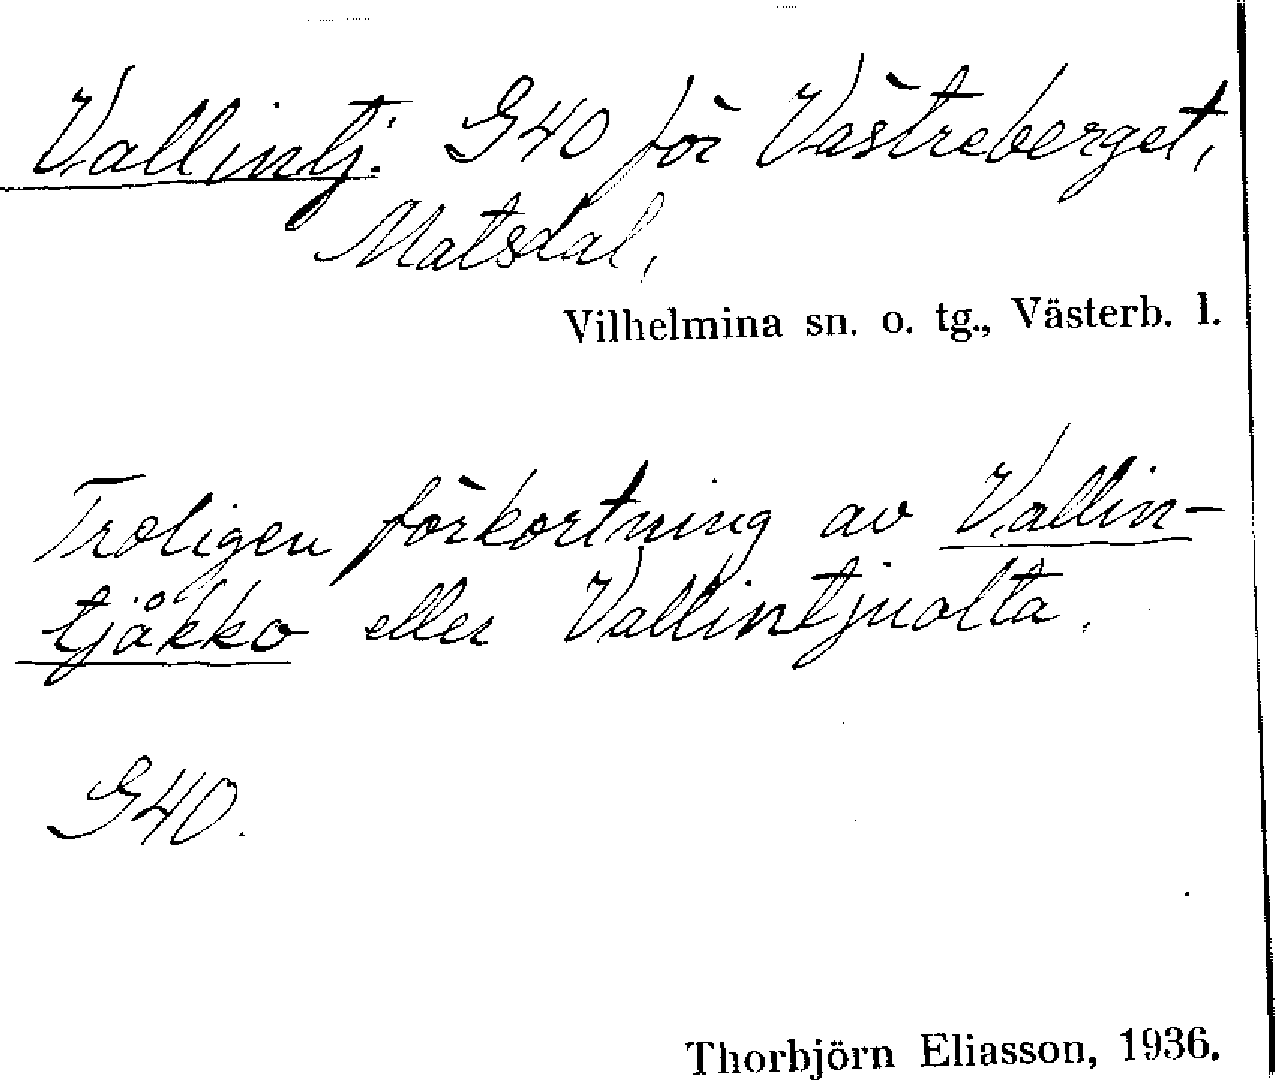 Vallintj. G40 för Västreberget,
Matsdal,
Vilhelmina sn. o. tg., Västerb. l.
Troligen förkortning av Vallin-
tjåkko eller Vallintjuolta.
G40.
Thorbjörn Eliasson, 1936.